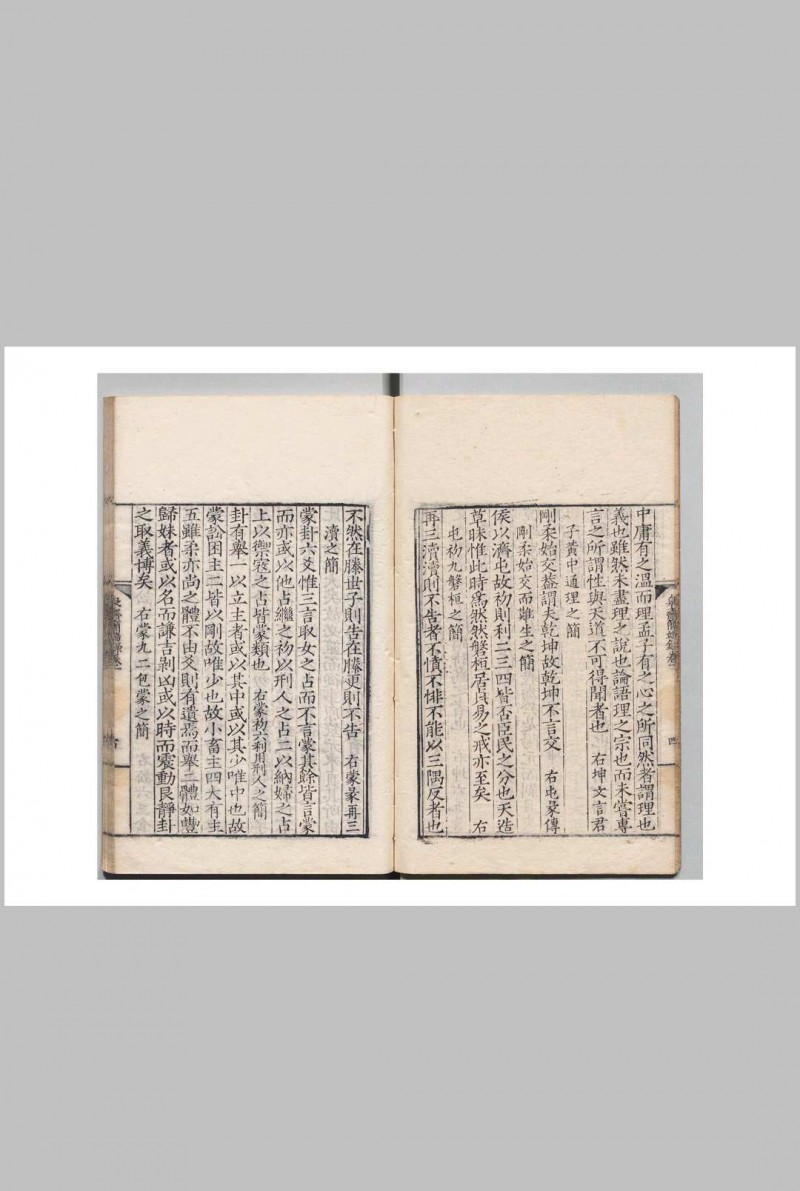 中庸有之溫而理孟子有之心之所同然者謂理也
義也雖然未盡理之說也論語理之宗也而未嘗專
言之所謂性與天道不可得聞者也 右坤文言君
子黃中通理之簡
剛柔始交蓋謂夫乾坤故乾坤不言交 右屯彖傳
剛柔始交而難生之簡
侯以濟屯故初則利二三四皆否臣民之分也天造
草昧惟此時爲然然磐桓居貞易之戒亦至矣 右
屯初九磐桓之簡
再三瀆瀆則不告者不憤不悱不能以三隅反者也
不然在滕世子則告在滕更則不告 右蒙彖再三
瀆之簡
蒙卦六爻惟三言取女之占而不言蒙其餘皆言蒙
而亦或以他占繼之初以刑人之占二以納婦之占
上以禦寇之占皆蒙類也 右蒙初六利用刑人之簡
卦有舉一以立主者或以其中或以其少唯中也故
蒙訟困主二皆以剛故唯少也故小畜主四大有主
五雖柔亦尚之體不由爻則有遺焉而舉二體如豐
歸妹者或以名而謙吉剝凶或以時而震動艮靜卦
之取義博矣 右蒙九二包蒙之簡
四